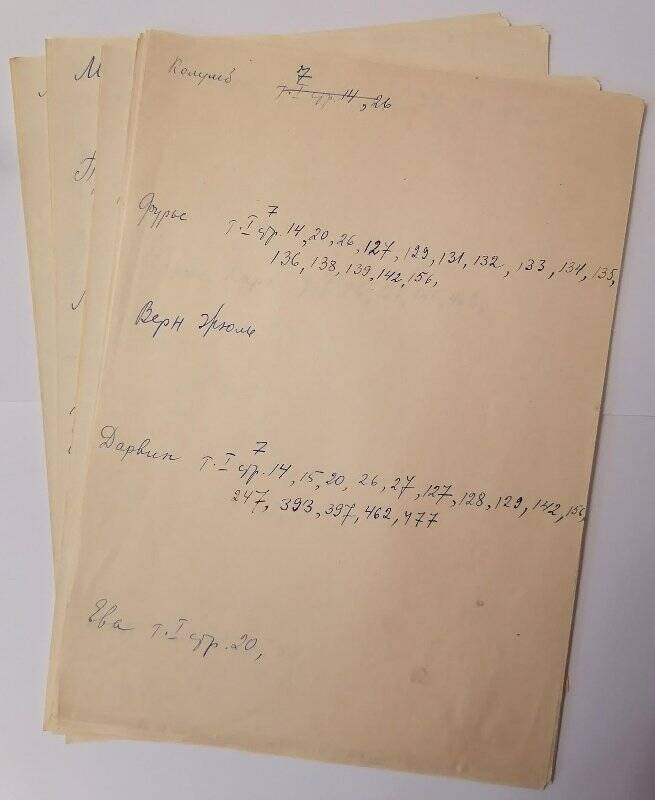 Колумб 7
т. I стр. 14, 26
Фурье 7
т. I стр. 14, 20, 26, 127, 129, 131, 132, 133, 134, 135,
136, 138, 139, 142, 156,
Верн Жюль
Дарвин 7
т. I стр. 14, 15, 20, 26, 27, 127, 128, 129, 142, 156,
247, 393, 397, 462, 477
Ева т. I стр. 20,